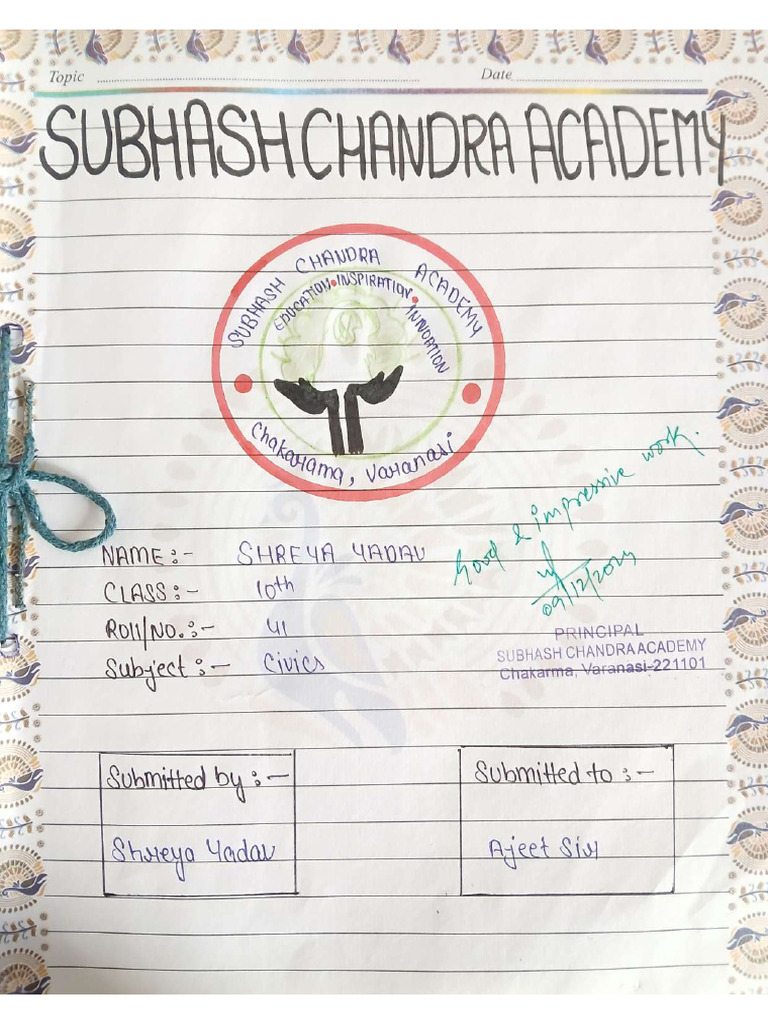 Topic
Date
SUBHASH CHANDRA ACADEMY
SUBHASH CHANDRA ACADEMY
EDUCATION•INSPIRATION•INNOVATION
Chakarama, Varanasi
Good & impressive work.
09/12/2024
NAME:- SHREYA YADAV
CLASS:- 10th
Roll/No.:- 41
Subject:- Civics
PRINCIPAL
SUBHASH CHANDRA ACADEMY
Chakarma, Varanasi-221101
Submitted by:-
Shreya Yadav
Submitted to:-
Ajeet Sir